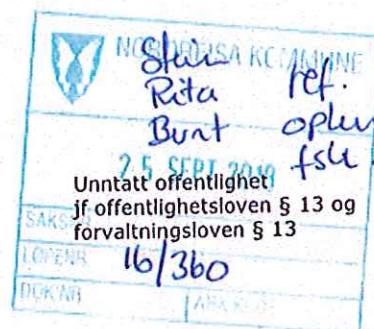 NORDREISA KOMMUNE
Stein ref.
Rita
Bunt
25 SEPT 2019
Unntatt offentlighet
jf offentlighetsloven § 13 og
forvaltningsloven § 13
SAKSNR
LØPENR 16/360
DOK.NR